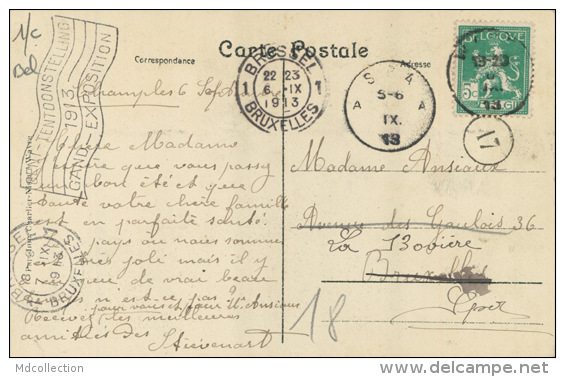 1/c
Bel
TENTOONSTELLING
1913
GAND EXPOSITION
Carte Postale
Correspondance
Adresse
BRUSSEL
22 23
1 6 IX 1
1913
BRUXELLES
S 4
A 5-6 A
IX
13
BELGIQUE
BELGIË
17
6 Sept
Chère Madame
que vous passez
un bon été et que
toute votre chère famille
est en parfaite santé.
où nous sommes
est très joli mais il y
de vrai beau
n'est-ce pas?
pour vous et pour M. Ansiaux
Recevez les meilleures
amitiés des Stiévenart
Madame Ansiaux
Avenue des Gaulois 36
La Bovière
Bruxelles
Spa
18
BRUXELLES
Mdcollection
www.delcampe.net